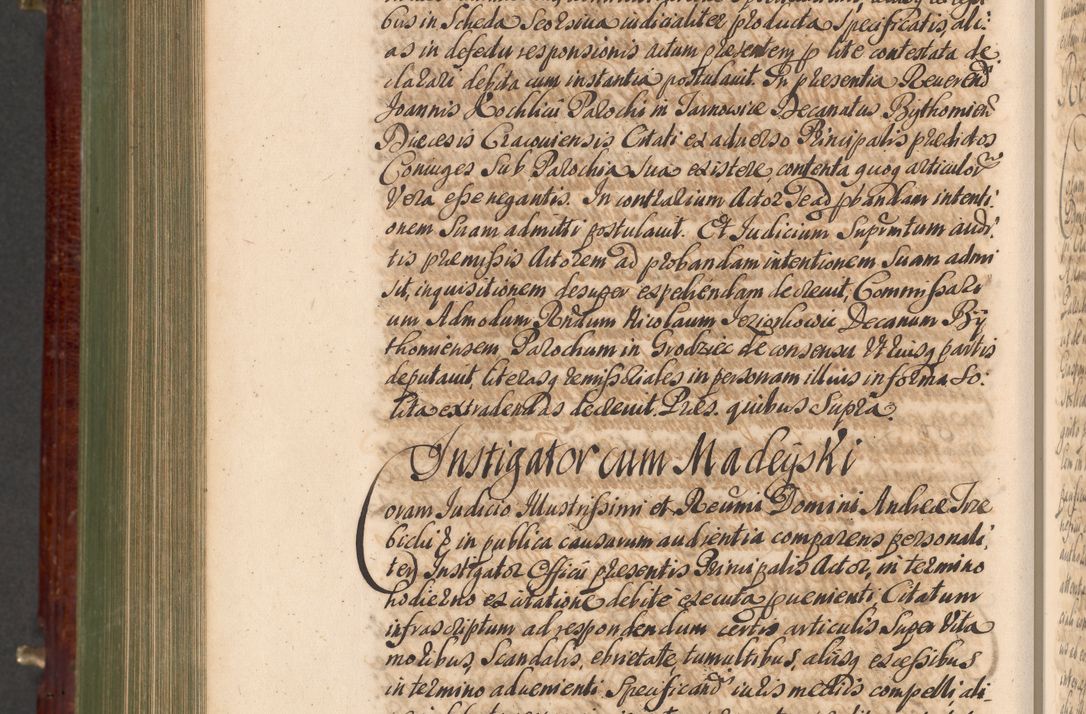 bus in Scheda Seorsiva iudicialiter producta Specificatis, ali:
as in defectu responsionis actum presentem p lite contestata de
clarari debita cum instantia postulauit. In presentia Reuerend
Joannis Kochlicii Parochi in Tarnowice Decanatus Bythomien
Diecesis Cracouiensis Citati ex aduerso Principalis predictos
Coniuges Sub Parochia sua existere contenta quoq articulor
Vera esse negantis. In contrarium Actor Se ad pbandam intenti:
onem Suam admitti postulauit. Et Judicium Suprmtum audi:
tis premissis Actorem ad probandam intentionem Suam admi
sit, inquisitionem desuper expehendam decreuit, Commissari
um Admodum Rndum Nicolaum Jeziorkowic Decanum By
thomiensem Parochum in Grodziec de consensu utriusq partis
deputauit, literasq remissoriales in personam illius in forma So:
lita extradendas decreuit. Pres. quibus Supra.
Instigator cum Madeyski
Coram Judicio Illustrissimi et Reumi Domini Andreæ Trze
bicki &c in publica causarum audientia comparens personali:
ter Instigator Officii presentis Principalis Actor, in termino
hodierno ex citatione debite executa puenienti Citatum
infrascriptum ad respondendum certis articulis Super Vita
moribus, Scandalis, ebrietate, tumultibus, aliisq excessibus
in termino aduenienti Specificand iuris mediis compelli ali